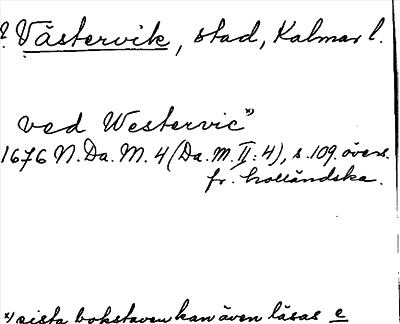 ? Västervik, stad, Kalmar l.
ved Westervic x)
1676 N. Da. M. 4 (Da. M. II: 4), s. 109. övers.
fr. holländska.
x) sista bokstaven kan även läsas e